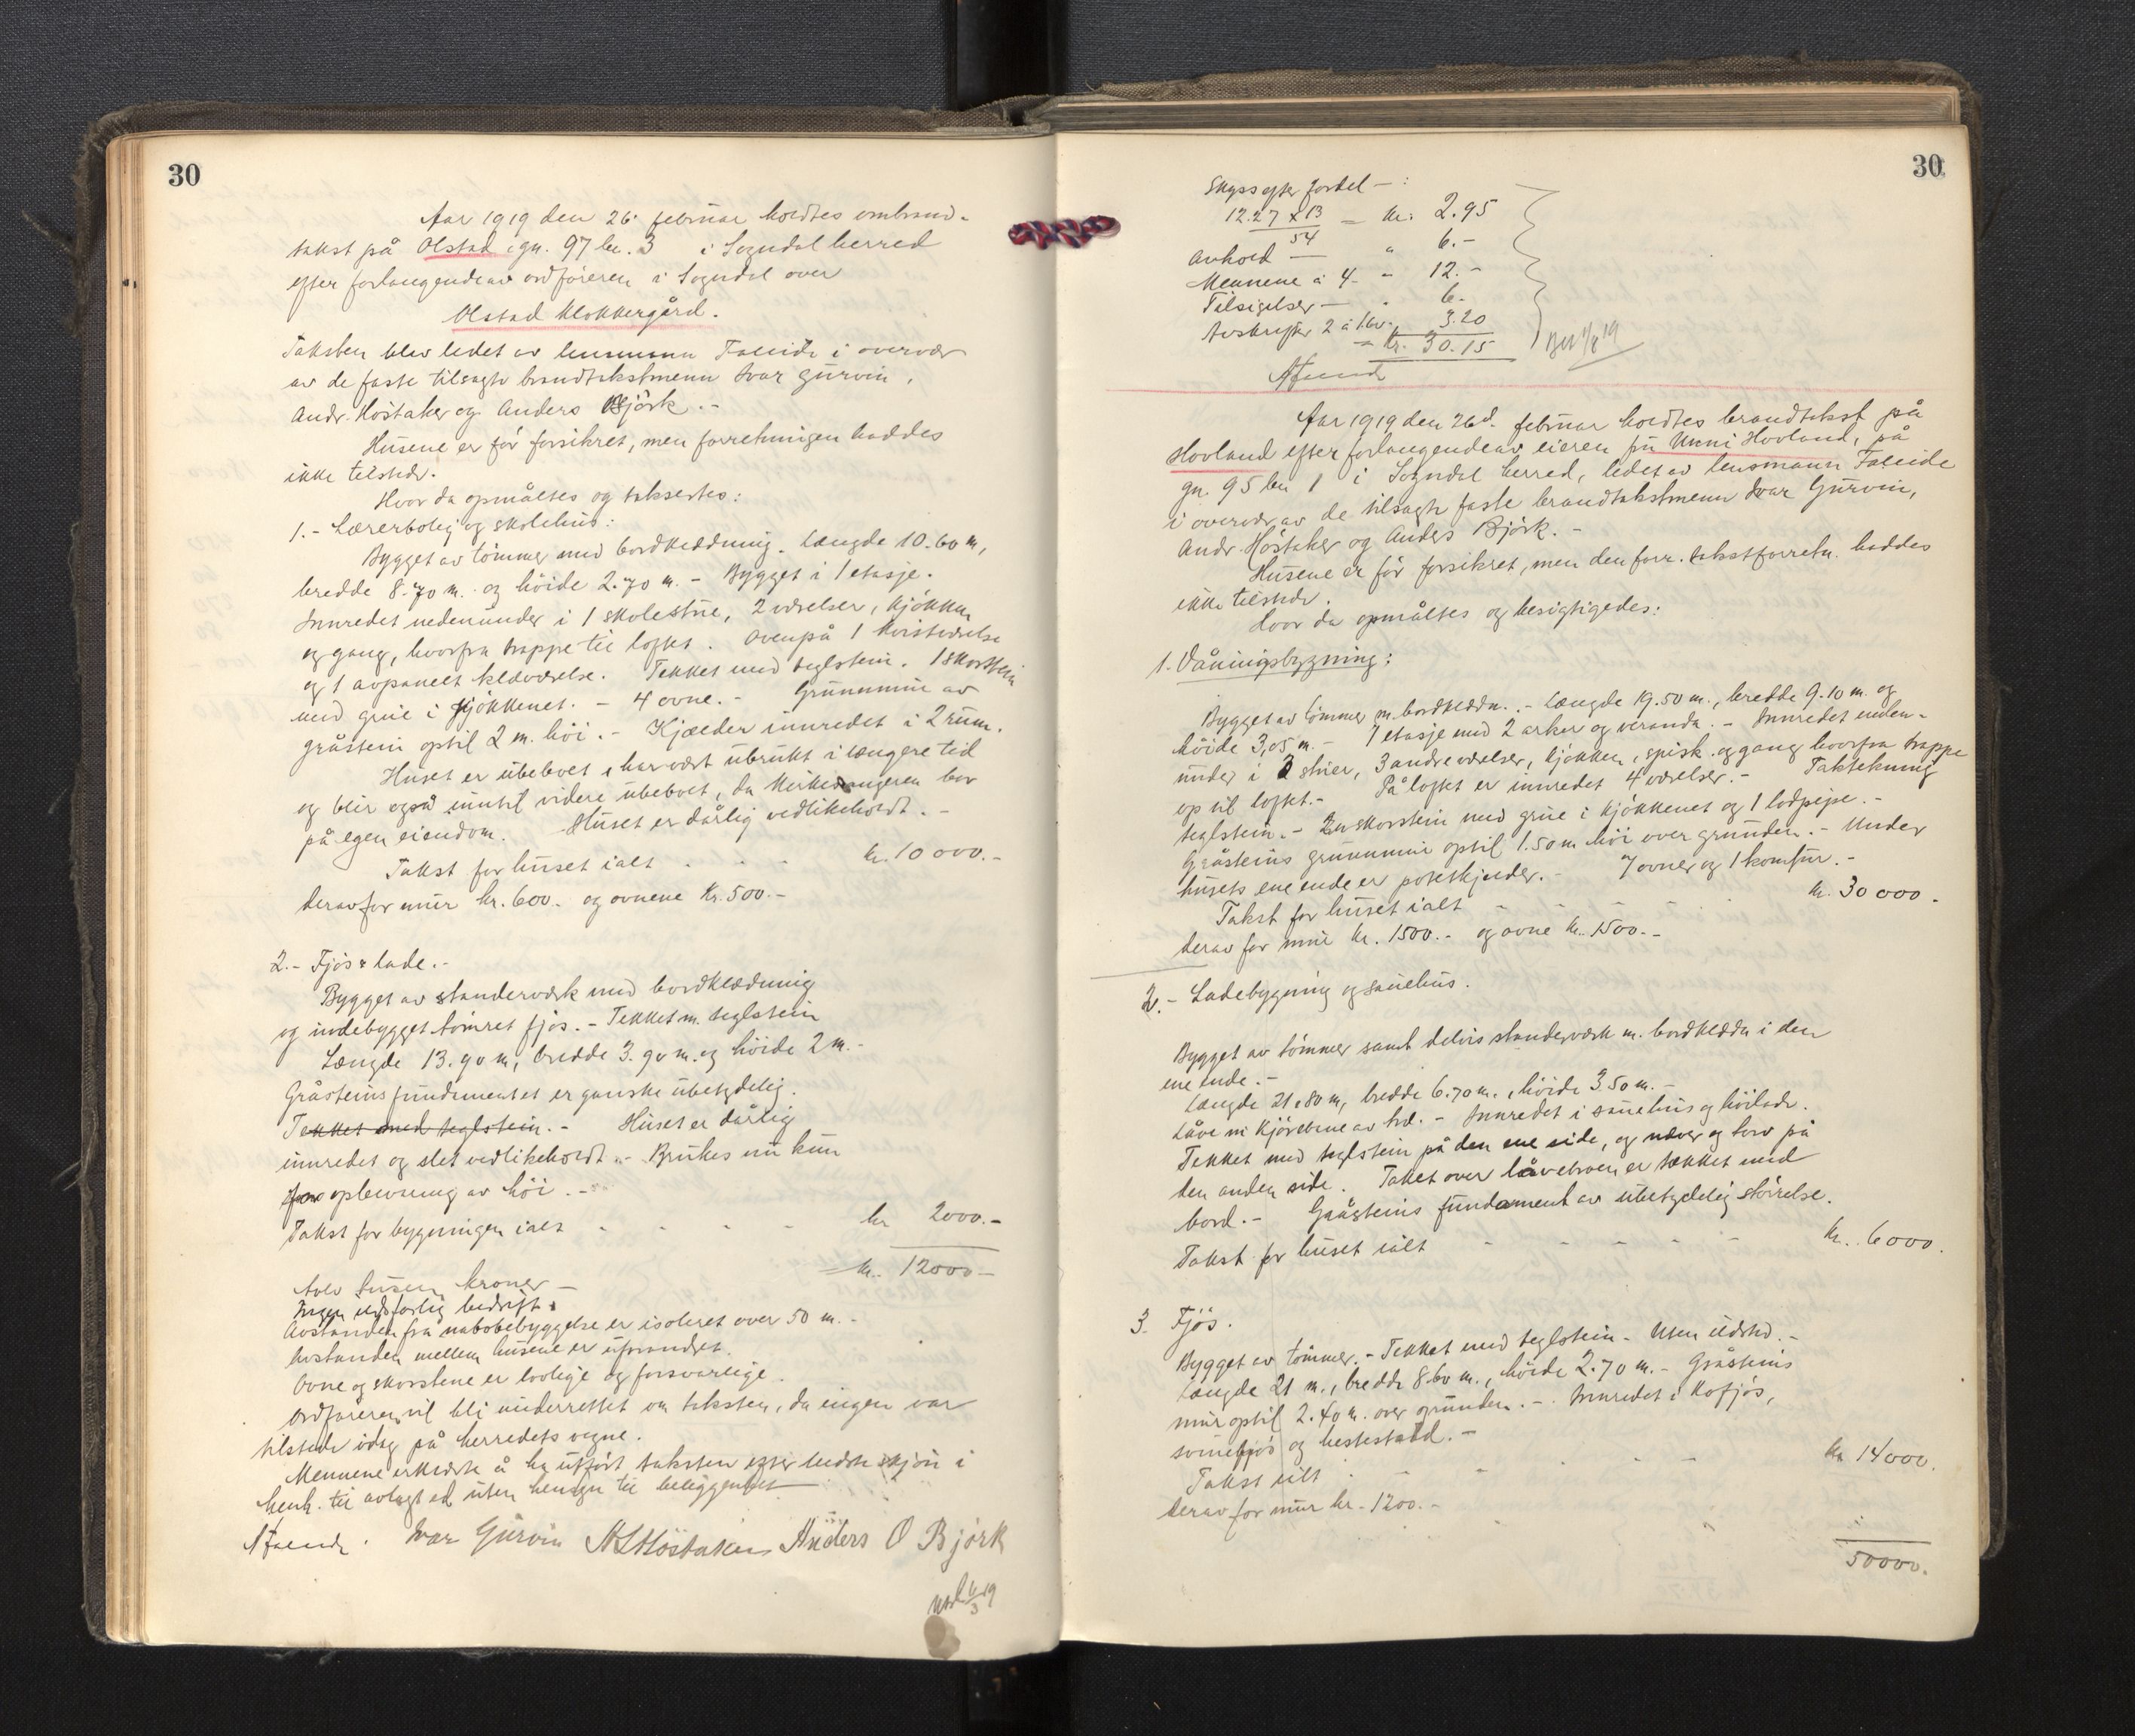 30
Aar 1919 den 26. februar holdtes ombrand-
takst på Olstad, gn. 97 br. 3 i Sogndal herred
efter forlangende av ordføreren i Sogndal over
Olstad klokkergård.
Taksten blev ledet av lensmann Faleide i overvær
av de faste tilsagte brandtakstmenn Ivar Gurvin,
Andr. Høstaker og Anders Bjørk.-
Husene er før forsikret, men forretningen haddes
ikke tilstede.
Hvor da opmåltes og takseres:
1.- Lærerbolig og skolehus:
Bygget av tømmer med bordklædning. Længde 10.60 m,
bredde 8.70 m. og høide 2.70 m.- Bygget i 1 etasje.
Innredet nedenunder i 1 skolestue, 2 værelser, kjøkken
og gang, hvorfra trappe til loftet. Ovenpå 1 kvistværelse
og 1 avpanelt klæværelse. Tekket med teglstein. 1 skorstein
med grue i kjøkkenet. - 4 ovne.- Grunnmur av
gråstein optil 2 m. høi.- Kjælder innredet i 2 rum.
Huset er ubebodt, har vært ubrukt i længere tid
og blir også inntil videre ubebodt, da kirkesangeren bor
på egen eiendom. Huset er dårlig vedlikeholdt.-
Takst for huset ialt kr. 10 000.-
derav for mur kr. 600.- og ovnene kr. 500.-
2.- Fjøs & lade.-
Bygget av standerværk med bordklædning
og indebygget tømret fjøs.- Tekket m. teglstein
Længde 13.90 m, bredde 3.90 m. og høide 2 m.-
Gråsteinsfundamentet er ganske ubetydelig.
Tekket med teglstein.- Huset er dårlig
innredet og slet vedlikeholdt.- Brukes nu kun
for opbevaring av høi.-
Takst for bygningen ialt kr 2000.-
kr. 12000-
tolv tusen kroner-
Ingen ildsfarlig bedrift.
Avstanden fra nabobebyggelse er isoleret over 50 m.-
Avstanden mellem husene er uforandret.
Ovne og skorstene er lovlige og forsvarlige.
Ordføreren vil bli underrettet om taksten, da ingen var
tilstede idag på herredets vegne.
Mennene erklærte å ha utført taksten efter bedste skjøn i
henh. til avlagt ed uten hensyn til beliggenhet
Ivar Gurvin A L Høstaker Anders O Bjørk
30
Skyss efter fordel - :
12.27 x 13 = kr. 2.95
54
Avhold - " 6.-
Mennene à 4 - 12.-
Tilsigelser - " 6.-
Avskrifter 2 à 1.60 3.20
= kr. 30.15
Aar 1919 den 26d. februar holdtes brandtakst på
Hovland efter forlangende av eieren fru Unni Hovland, på
gn. 95 br 1 i Sogndal herred, ledet av lensmann Faleide
i overvær av de tilsagte faste brandtakstmenn Ivar Gurvin,
Andr. Høstaker og Anders Bjørk.-
Husene er før forsikret, men den forr. takstforretn. haddes
ikke tilstede.
Hvor da opmåltes og besigtigedes:
1. Våningsbygning:
Bygget av tømmer m. bordklædn.- Længde 19.50 m., bredde 9.10 m. og
høide 3,05 m.- 1 etasje med 2 arker og veranda.- Innredet neden-
under i 2 stuer, 3 andre værelser, kjøkken, spisk. og gang hvorfra trappe
op til loftet.- På loftet er innredet 4 værelser.- Taktekning
teglstein.- En skorstein med grue i kjøkkenet og 1 lodpipe.-
Gråsteins grunnmur optil 1.50 m høi over grunden.- Under
husets ene ende er potetkjelder.- 7 ovner og 1 komfur.-
Takst for huset ialt kr. 30 000.
derav for mur kr. 1500.- og ovne kr. 1500.-
2.- Ladebygning og sauehus.
Bygget av tømmer samt delvis standerværk m. bordklædn i den
ene ende.-
Længde 21.80 m, bredde 6.70 m., høide 3 50 m.-
Låve m kjørebro av trd.- Innredet i sauehus og høilade.
Tekket med teglstein på den ene side, og næver og torv på
den anden side. Taket over låvebroen er tækket med
bord.- Gråsteins fundament av ubetydelig størrelse.
Takst for huset ialt kr. 6000.
3. Fjøs.
Bygget av tømmer.- Tekket med teglstein- Uten ildsted.-
Længde 21 m., bredde 8.60 m., høide 2.70 m.- Gråsteins
mur optil 2.40 m. over grunden.- Innredet i kofjøs,
svinefjøs og hestestald.-
Takst ialt kr 14000.
derav for mur kr. 1200.-
50000.